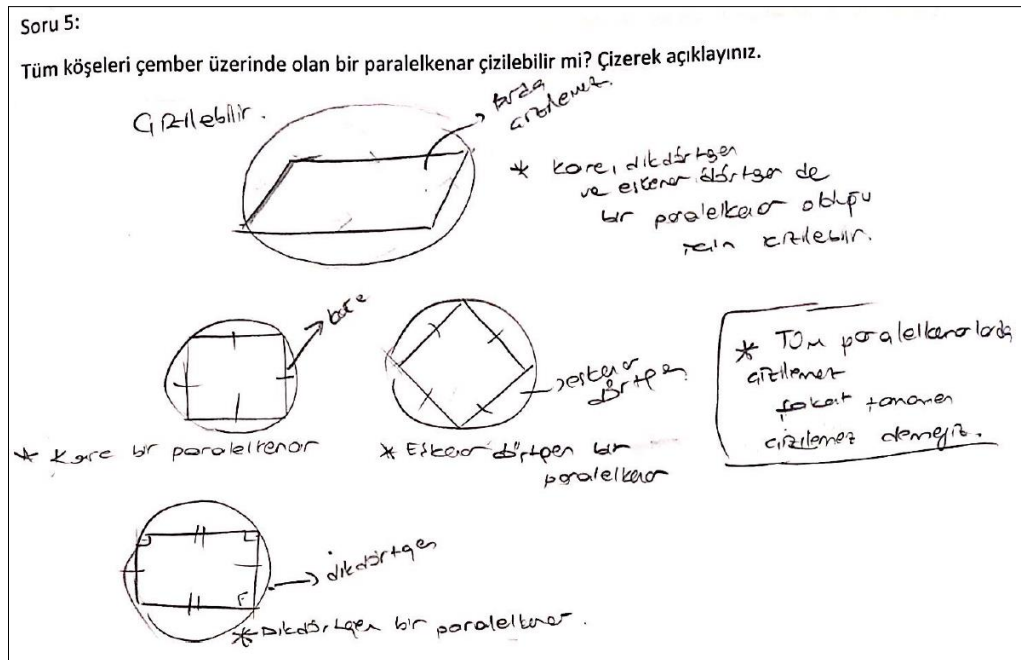 Soru 5:
Tüm köşeleri çember üzerinde olan bir paralelkenar çizilebilir mi? Çizerek açıklayınız.
Çizilebilir.
burda
çizilemez.
* Kare, dikdörtgen
ve eşkenar dörtgen de
bir paralelkenar olduğu
için çizilebilir.
kare
* Kare bir paralelkenar
eşkenar
dörtgen
* Eşkenar dörtgen bir
paralelkenar
* Tüm paralelkenarlarda
çizilemez
fakat tamamen
çizilemez demeyiz.
dikdörtgen
* Dikdörtgen bir paralelkenar.